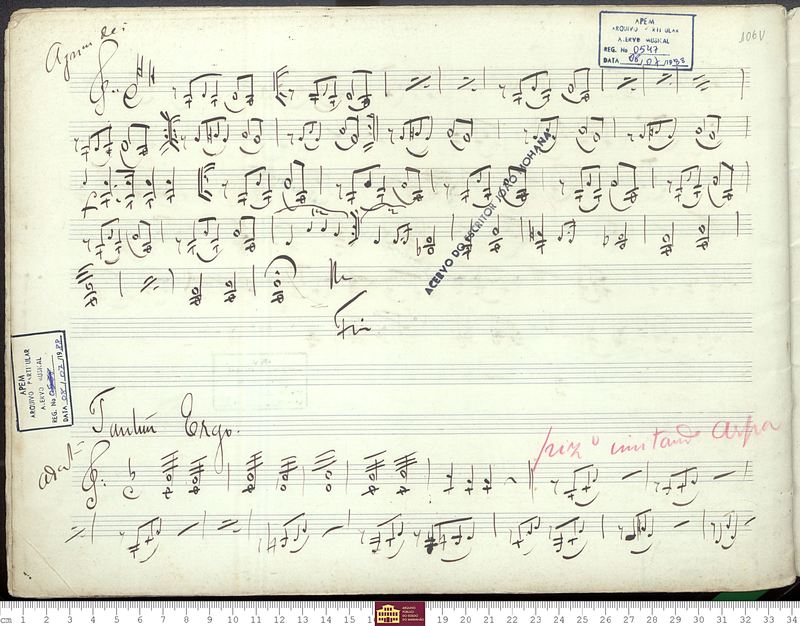 Agnus dei
106V
APEM
ARQUIVO PARTICULAR
ACERVO MUSICAL
REG. No 0547
DATA 08/07/1988
ACERVO DO ESCRITOR JOÃO MOHANA
Fim
APEM
ARQUIVO PARTICULAR
ACERVO MUSICAL
REG. No
DATA
Tantum Ergo.
pizº imitando Arpa
cm 1 2 3 4 5 6 7 8 9 10 11 12 13 14 15 16 19 20 21 22 23 24 25 26 27 28 29 30 31 32 33 34
ARQUIVO
PÚBLICO
DO ESTADO
DO MARANHÃO